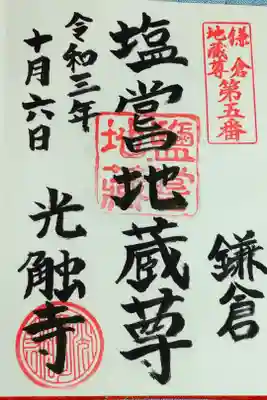 鎌倉
地蔵尊
第五番
鎌倉
塩嘗地蔵尊
鹽嘗
地藏
光触寺
令和三年
十月六日